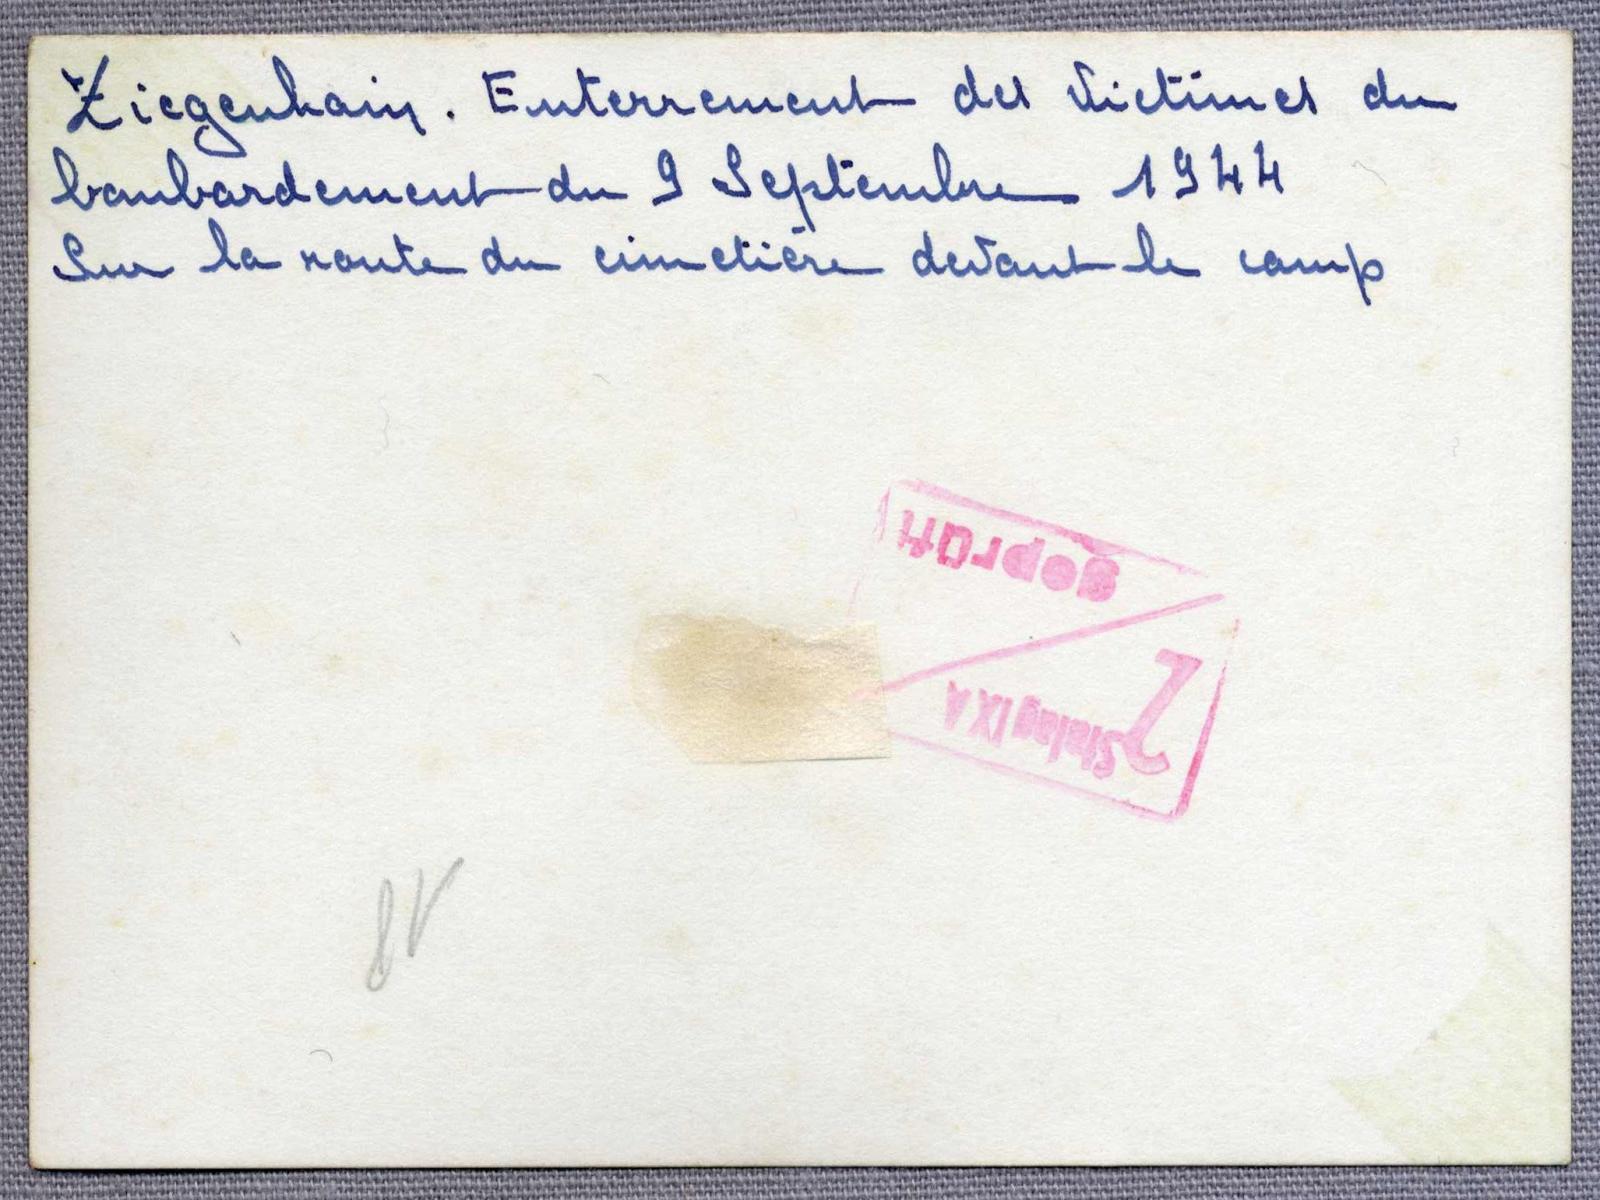 Ziegenhain. Enterrement des victimes du
bombardement du 9 Septembre 1944
Sur la route du cimetière devant le camp
geprüft
Stalag IX A
2